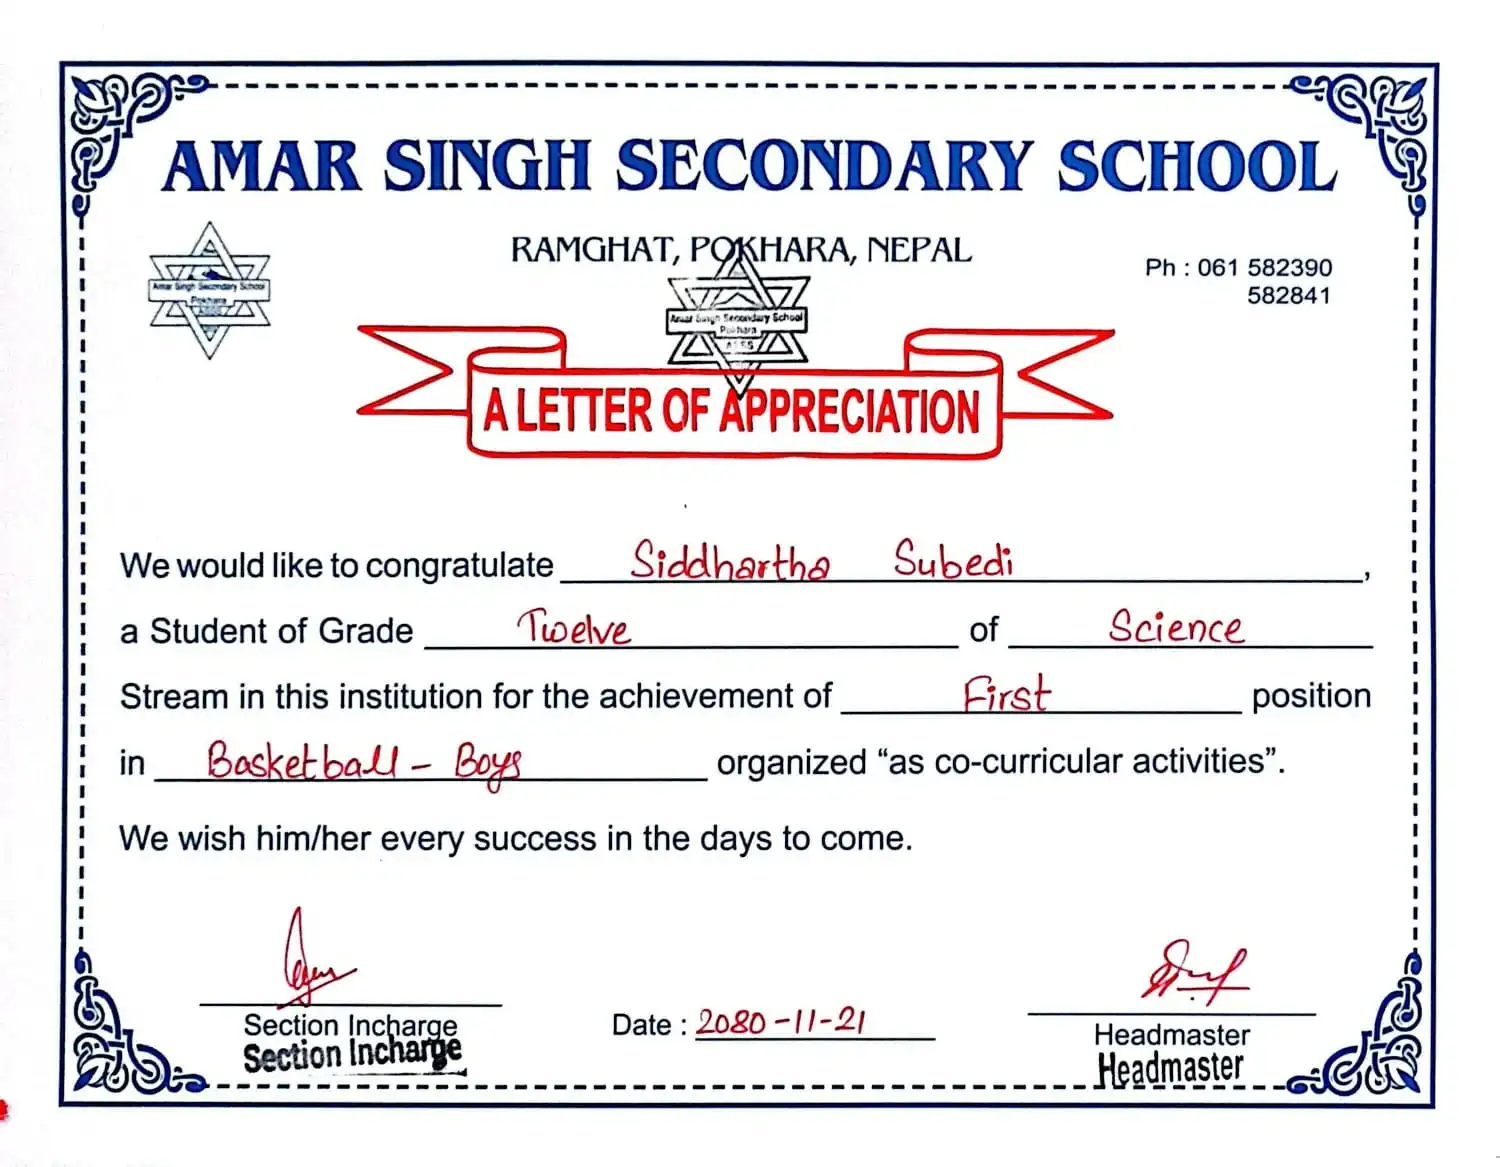 AMAR SINGH SECONDARY SCHOOL
RAMGHAT, POKHARA, NEPAL
Ph : 061 582390
582841
Amar Singh Secondary School
Pokhara
Amar Singh Secondary School
Pokhara
A LETTER OF APPRECIATION
We would like to congratulate Siddhartha Subedi,
a Student of Grade Twelve of Science
Stream in this institution for the achievement of First position
in Basketball - Boys organized “as co-curricular activities”.
We wish him/her every success in the days to come.
Section Incharge
Section Incharge
Date : 2080-11-21
Headmaster
Headmaster